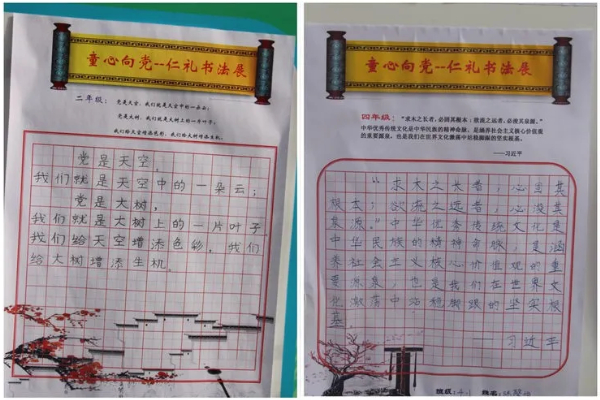 童心向党--仁礼书法展
二年级：
党是天空，我们就是天空中的一朵云；
党是大树，我们就是大树上的一片叶子。
我们给天空增添色彩，我们给大树增添生机。
党是天空，
我们就是天空中的一朵云；
党是大树，
我们就是大树上的一片叶子
我们给天空增添色彩，我们
给大树增添生机。
童心向党--仁礼书法展
四年级：
“求木之长者，必固其根本；欲流之远者，必浚其泉源。”
中华优秀传统文化是中华民族的精神命脉，是涵养社会主义核心价值观
的重要源泉，也是我们在世界文化激荡中站稳脚跟的坚实根基。
——习近平
“求木之长者，必固其
根本；欲流之远者，必浚其
泉源。”中华优秀传统文化是
中华民族的精神命脉，是涵
养社会主义核心价值观的重
要源泉，也是我们在世界文
化激荡中站稳脚跟的坚实根
基。
——习近平
班级：
姓名：